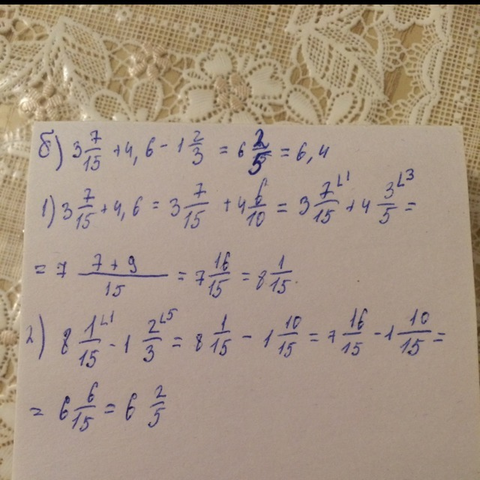 б) 3 7/15 + 4,6 - 1 2/3 = 6 2/5 = 6,4
1) 3 7/15 + 4,6 = 3 7/15 + 4 6/10 = 3 7/15 ∟1 + 4 3/5 ∟3 =
= 7 7+9/15 = 7 16/15 = 8 1/15.
2) 8 1/15 ∟1 - 1 2/3 ∟5 = 8 1/15 - 1 10/15 = 7 16/15 - 1 10/15 =
= 6 6/15 = 6 2/5